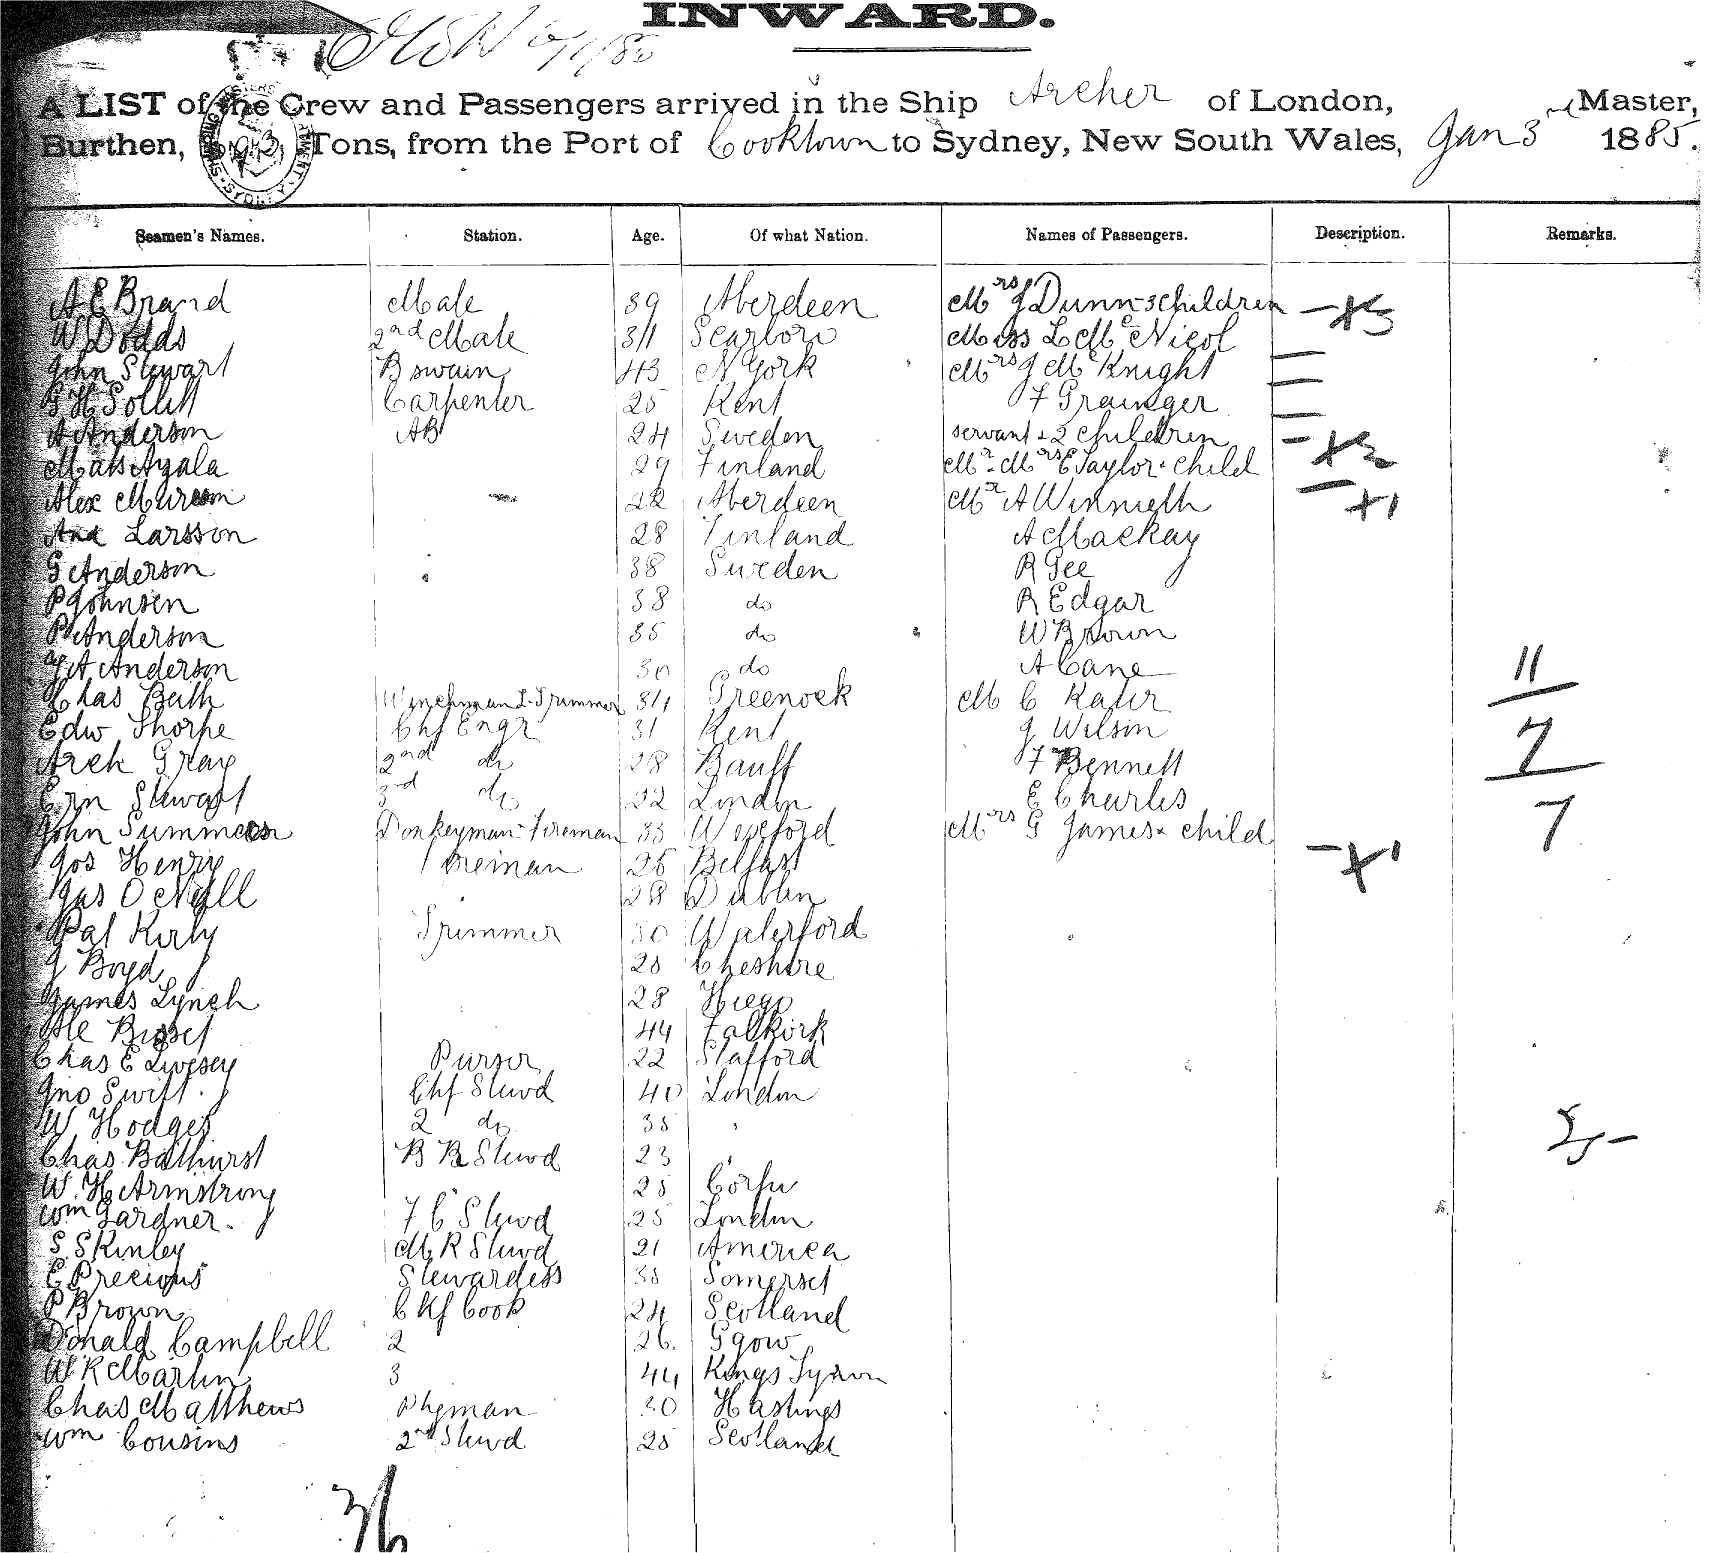 INWARD.
A LIST of the Crew and Passengers arrived in the Ship Archer of London, Master,
Burthen, Tons, from the Port of Cooktown to Sydney, New South Wales, Jan 3rd 1885.
Seamen's Names. Station. Age. Of what Nation. Names of Passengers. Description. Remarks.
A E Brand Mate 39 Aberdeen Mrs J Dunn 3 children - X3
W Dodds 2nd Mate 34 Scarboro Miss L McNicol
John Stewart Bswain 43 N York Mrs J McKnight
G H Carpenter 25 Kent F Grainger
A Anderson AB 24 Sweden servant + 2 children - X2
Mats 29 Finland Mr Mrs E Taylor + child
Alex 22 Aberdeen Mr A X1
Larsson 28 Finland A Mackay
G Anderson 38 Sweden R Gee
P Johnsen 38 do R Edgar
P Anderson 35 do W Brown
A Anderson 30 do A Cane 11
Chas Winchman & Trimmer 34 Greenock M C
Edw Thorpe Chf Engr 31 Kent J Wilson 7
Arch Gray 2nd do 28 Banff F Bennett
Ern Stewart 3rd do 22 London E Charles 7
John Summers Donkeyman Fireman 33 Wexford Mrs G James + child
Jos Henry Fireman 26 Belfast - X1
Jas O Neill 28 Dublin
Pat Kirby Trimmer 30 Waterford
J Boyd 25 Cheshire
James Lynch 28
Bisset 44 Falkirk
Chas E Livesey Purser 22 Stafford
Jno Swift Chf Stewd 40 London
W Hodges 2 do 35
Chas Bathurst B R Stewd 23
W. H Armstrong 25 Corfu
Wm Gardner. F C Stewd 25 London
S Skinley M R Stewd 21 America
E Precious Stewardess 38 Somerset
P Brown Chf Cook 24 Scotland
Donald Campbell 2 26. Ggow
W R Martin 3 44 Kings Lynn
Chas Matthews 30 Hastings
Wm Cousins 2nd Stewd 25 Scotland
36